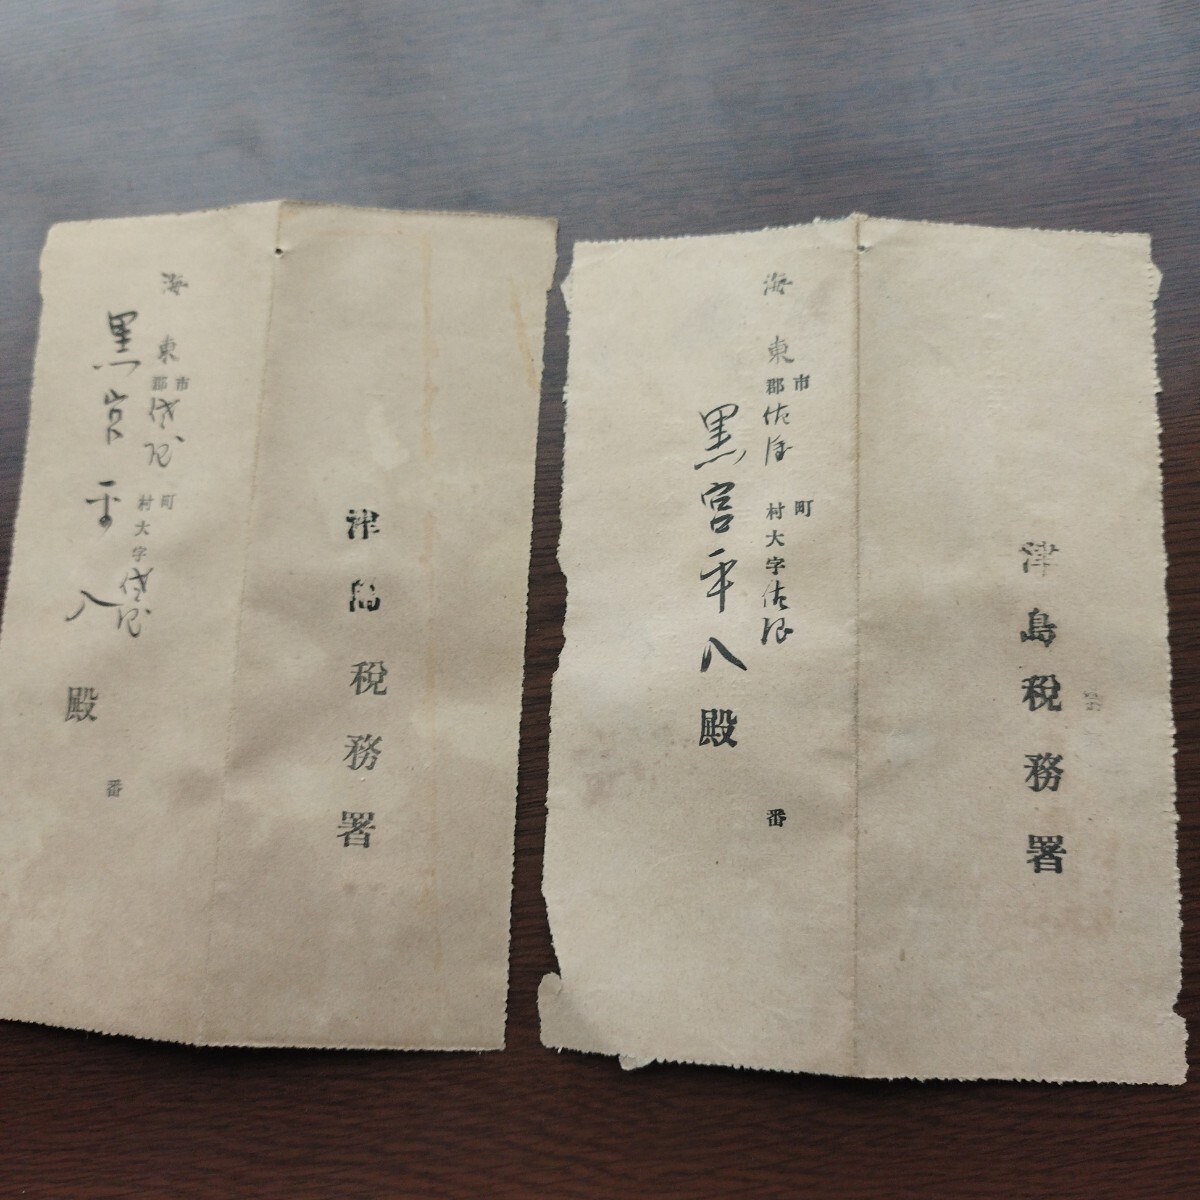 津島税務署
市町
海東郡佐屋村大字佐屋番
黒宮平八殿
津島税務署
市町
海東郡村大字番
黒宮平八殿